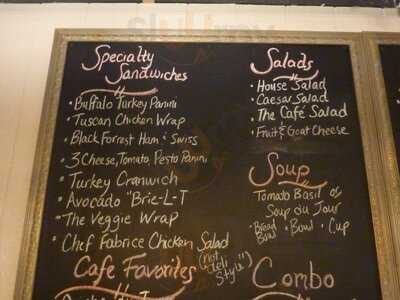 Specialty
Sandwiches
• Buffalo Turkey Panini
• Tuscan Chicken Wrap
• Black Forrest Ham & Swiss
• 3 Cheese, Tomato, Pesto Panini
• Turkey Cranwich
• Avocado "Brie-L-T
• The Veggie Wrap
• Chef Fabrice Chicken Salad
(not deli style")
Cafe Favorites
Salads
• House Salad
• Caesar Salad
• The Café Salad
• Fruit & Goat Cheese
Soup
Tomato Basil or
Soup du Jour
• Bread Bowl • Bowl • Cup
Combo